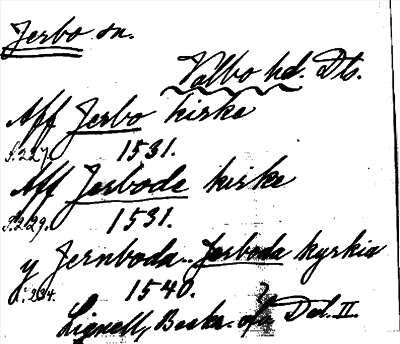 Jerbo sn.
Valbo hd. Dls.
Aff Jerbo kirke
s. 227. 1531.
Aff Jerbode kirke
s. 229. 1531.
y Jernboda.. Jerboda kyrkia
s. 234. 1540.
Lignell, Beskr. of. Dal. II.